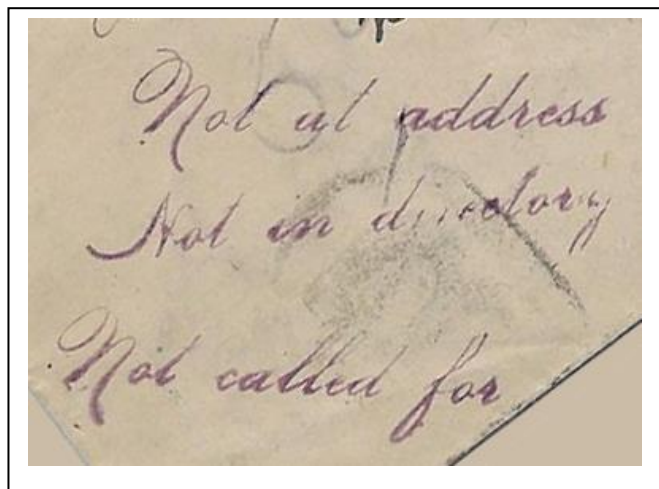 Not at address
Not in directory
Not called for